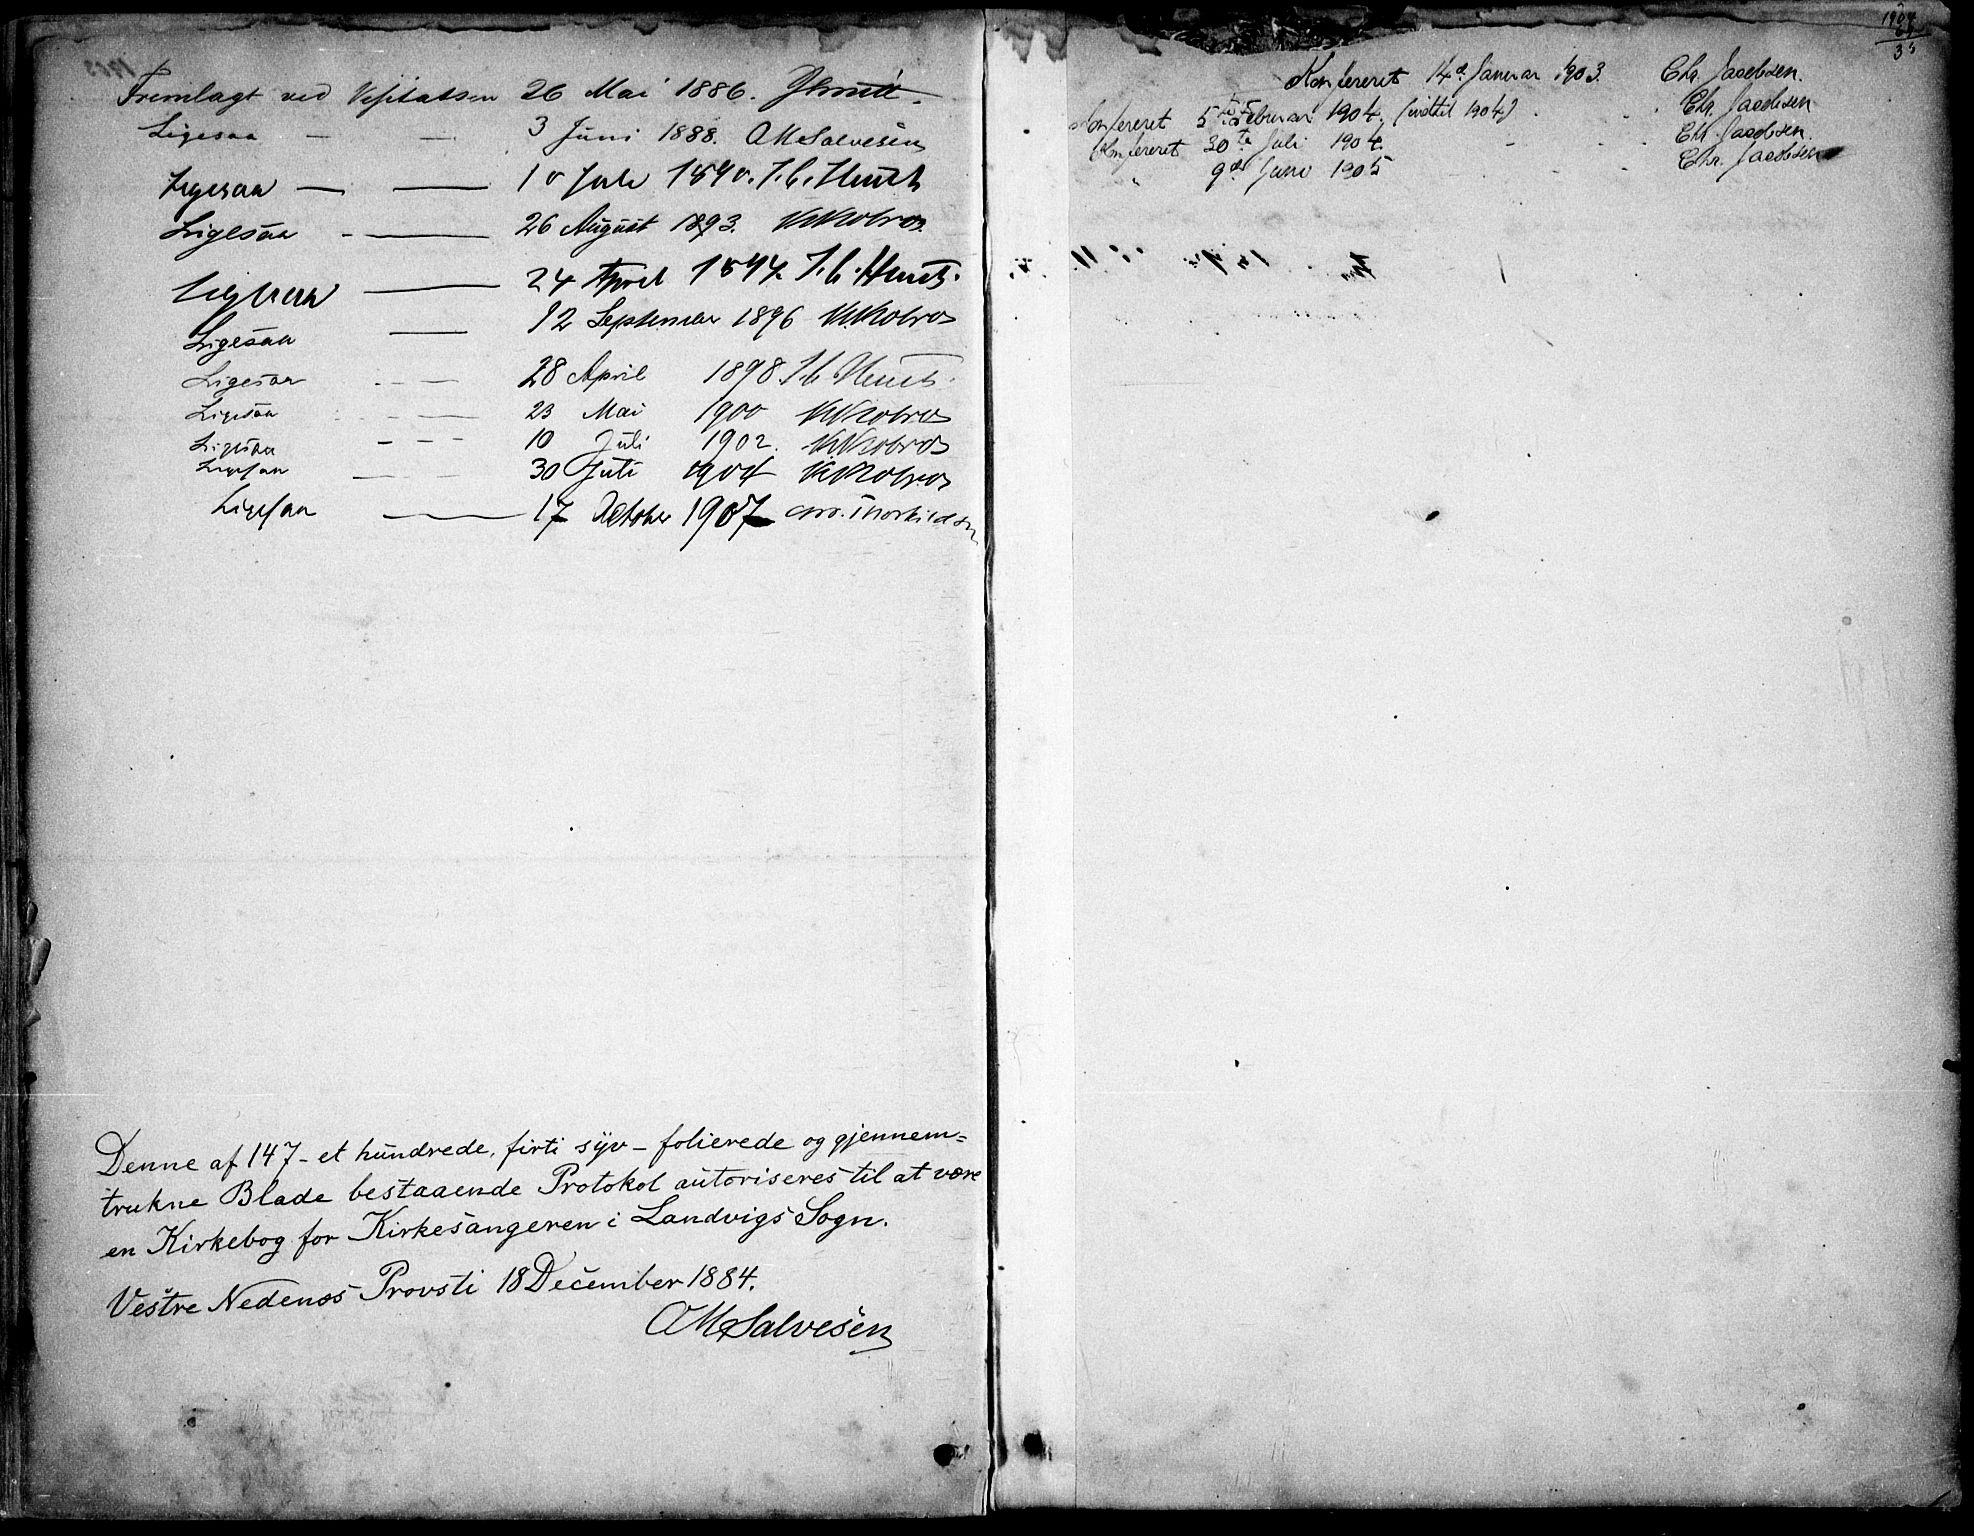 Fremlagt ved Visitatsen 26 Mai 1886.
Ligesaa — — 3 Juni 1888. OMSalvesen
Ligesaa — — 10 Juli 1890. J. C. Heuch
Ligesaa - — 26 August 1893.
Ligesaa — 24 April 1894. J. C. Heuch.
Ligesaa — 12 September 1896
Ligesaa - - — 28 April 1898. J. C. Heuch.
Ligesaa - - — 23 Mai 1900
Ligesaa - - - 10 Juli 1902.
Ligesaa — - — 30 Juli 1904
Ligesaa — 17 October 1907 Thorkildsen
Denne af 147 - et hundrede, firti syv - folierede og gjennem=
trukne Blade bestaaende Protokol autoriseres til at være
en Kirkebog for Kirkesangeren i Landvigs Sogn.
Vestre Nedenes Provsti 18 December 1884.
OMSalvesen
1904
35
Konfereret 14d. Januar 1903. Chr. Jacobsen.
Konfereret 5te Februar 1904. (indtil 1904) Chr. Jacobsen
Konfereret 30te Juli 1904. Chr. Jacobsen.
" 9de Juni 1905 Chr. Jacobsen